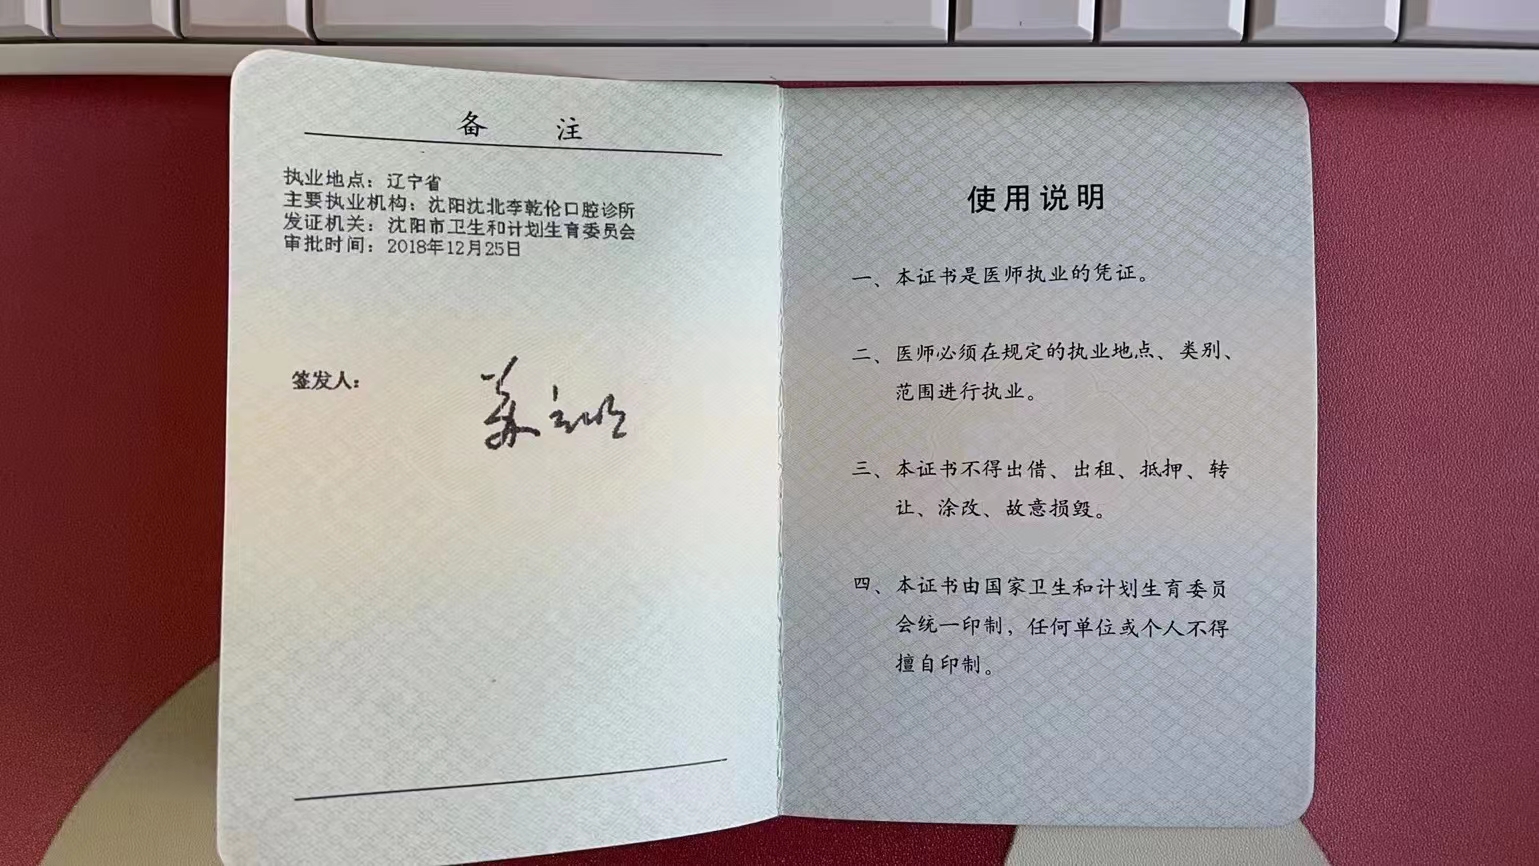 备 注
执业地点：辽宁省
主要执业机构：沈阳沈北李乾伦口腔诊所
发证机关：沈阳市卫生和计划生育委员会
审批时间：2018年12月25日
签发人：
使用说明
一、本证书是医师执业的凭证。
二、医师必须在规定的执业地点、类别、
范围进行执业。
三、本证书不得出借、出租、抵押、转
让、涂改、故意损毁。
四、本证书由国家卫生和计划生育委员
会统一印制，任何单位或个人不得
擅自印制。